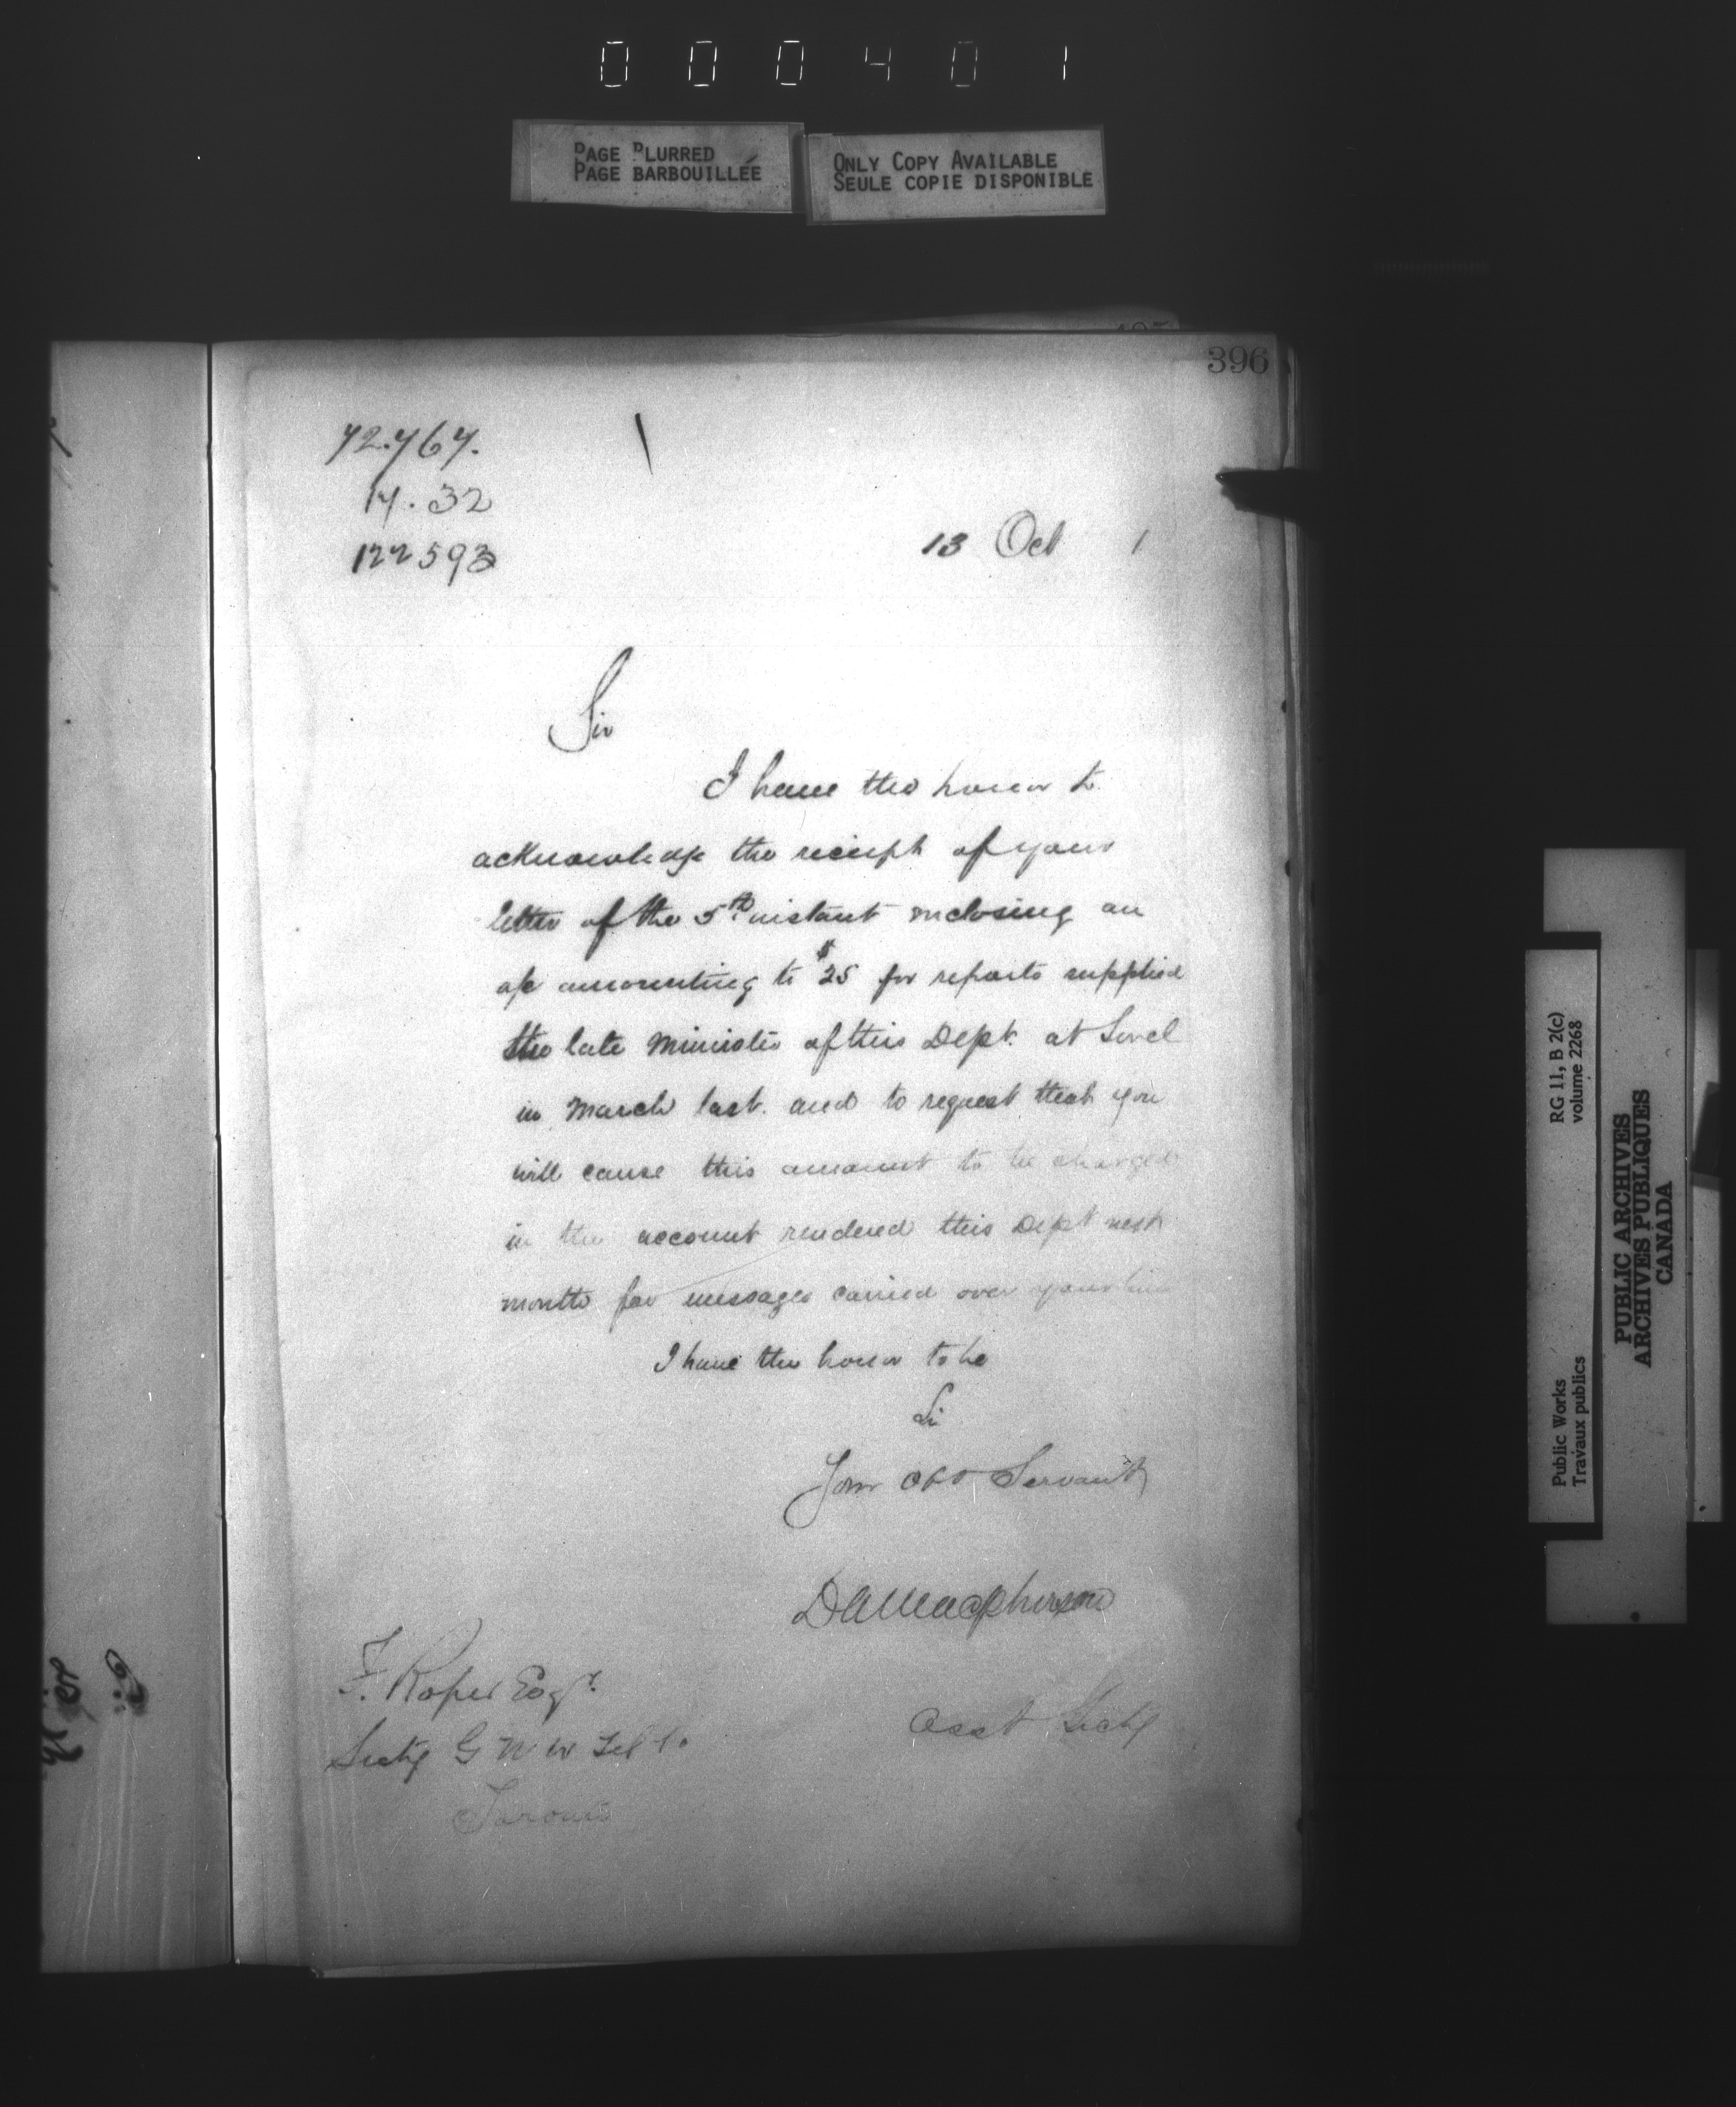 0 0 0 4 0 1
PAGE BLURRED
PAGE BARBOUILLÉE
ONLY COPY AVAILABLE
SEULE COPIE DISPONIBLE
396
72.767.
17.32
122593
13 Oct 1
Sir
I have the honor to
acknowledge the receipt of your
letter of the 5th instant enclosing an
a/c amounting to $25 for reports supplied
the late Minister of this Dept. at Sorel
in March last. and to request that you
will cause this amount to be charged
in the account rendered this Dept next
month for messages carried over your line
I have the honor to be
Sir
Your Obt Servant
D A Macpherson
Asst Secty
F. Roper Esqr.
Secty G N W Tel Co.
Toronto
RG 11, B 2(c)
volume 2268
Public Works
Travaux publics
PUBLIC ARCHIVES
ARCHIVES PUBLIQUES
CANADA